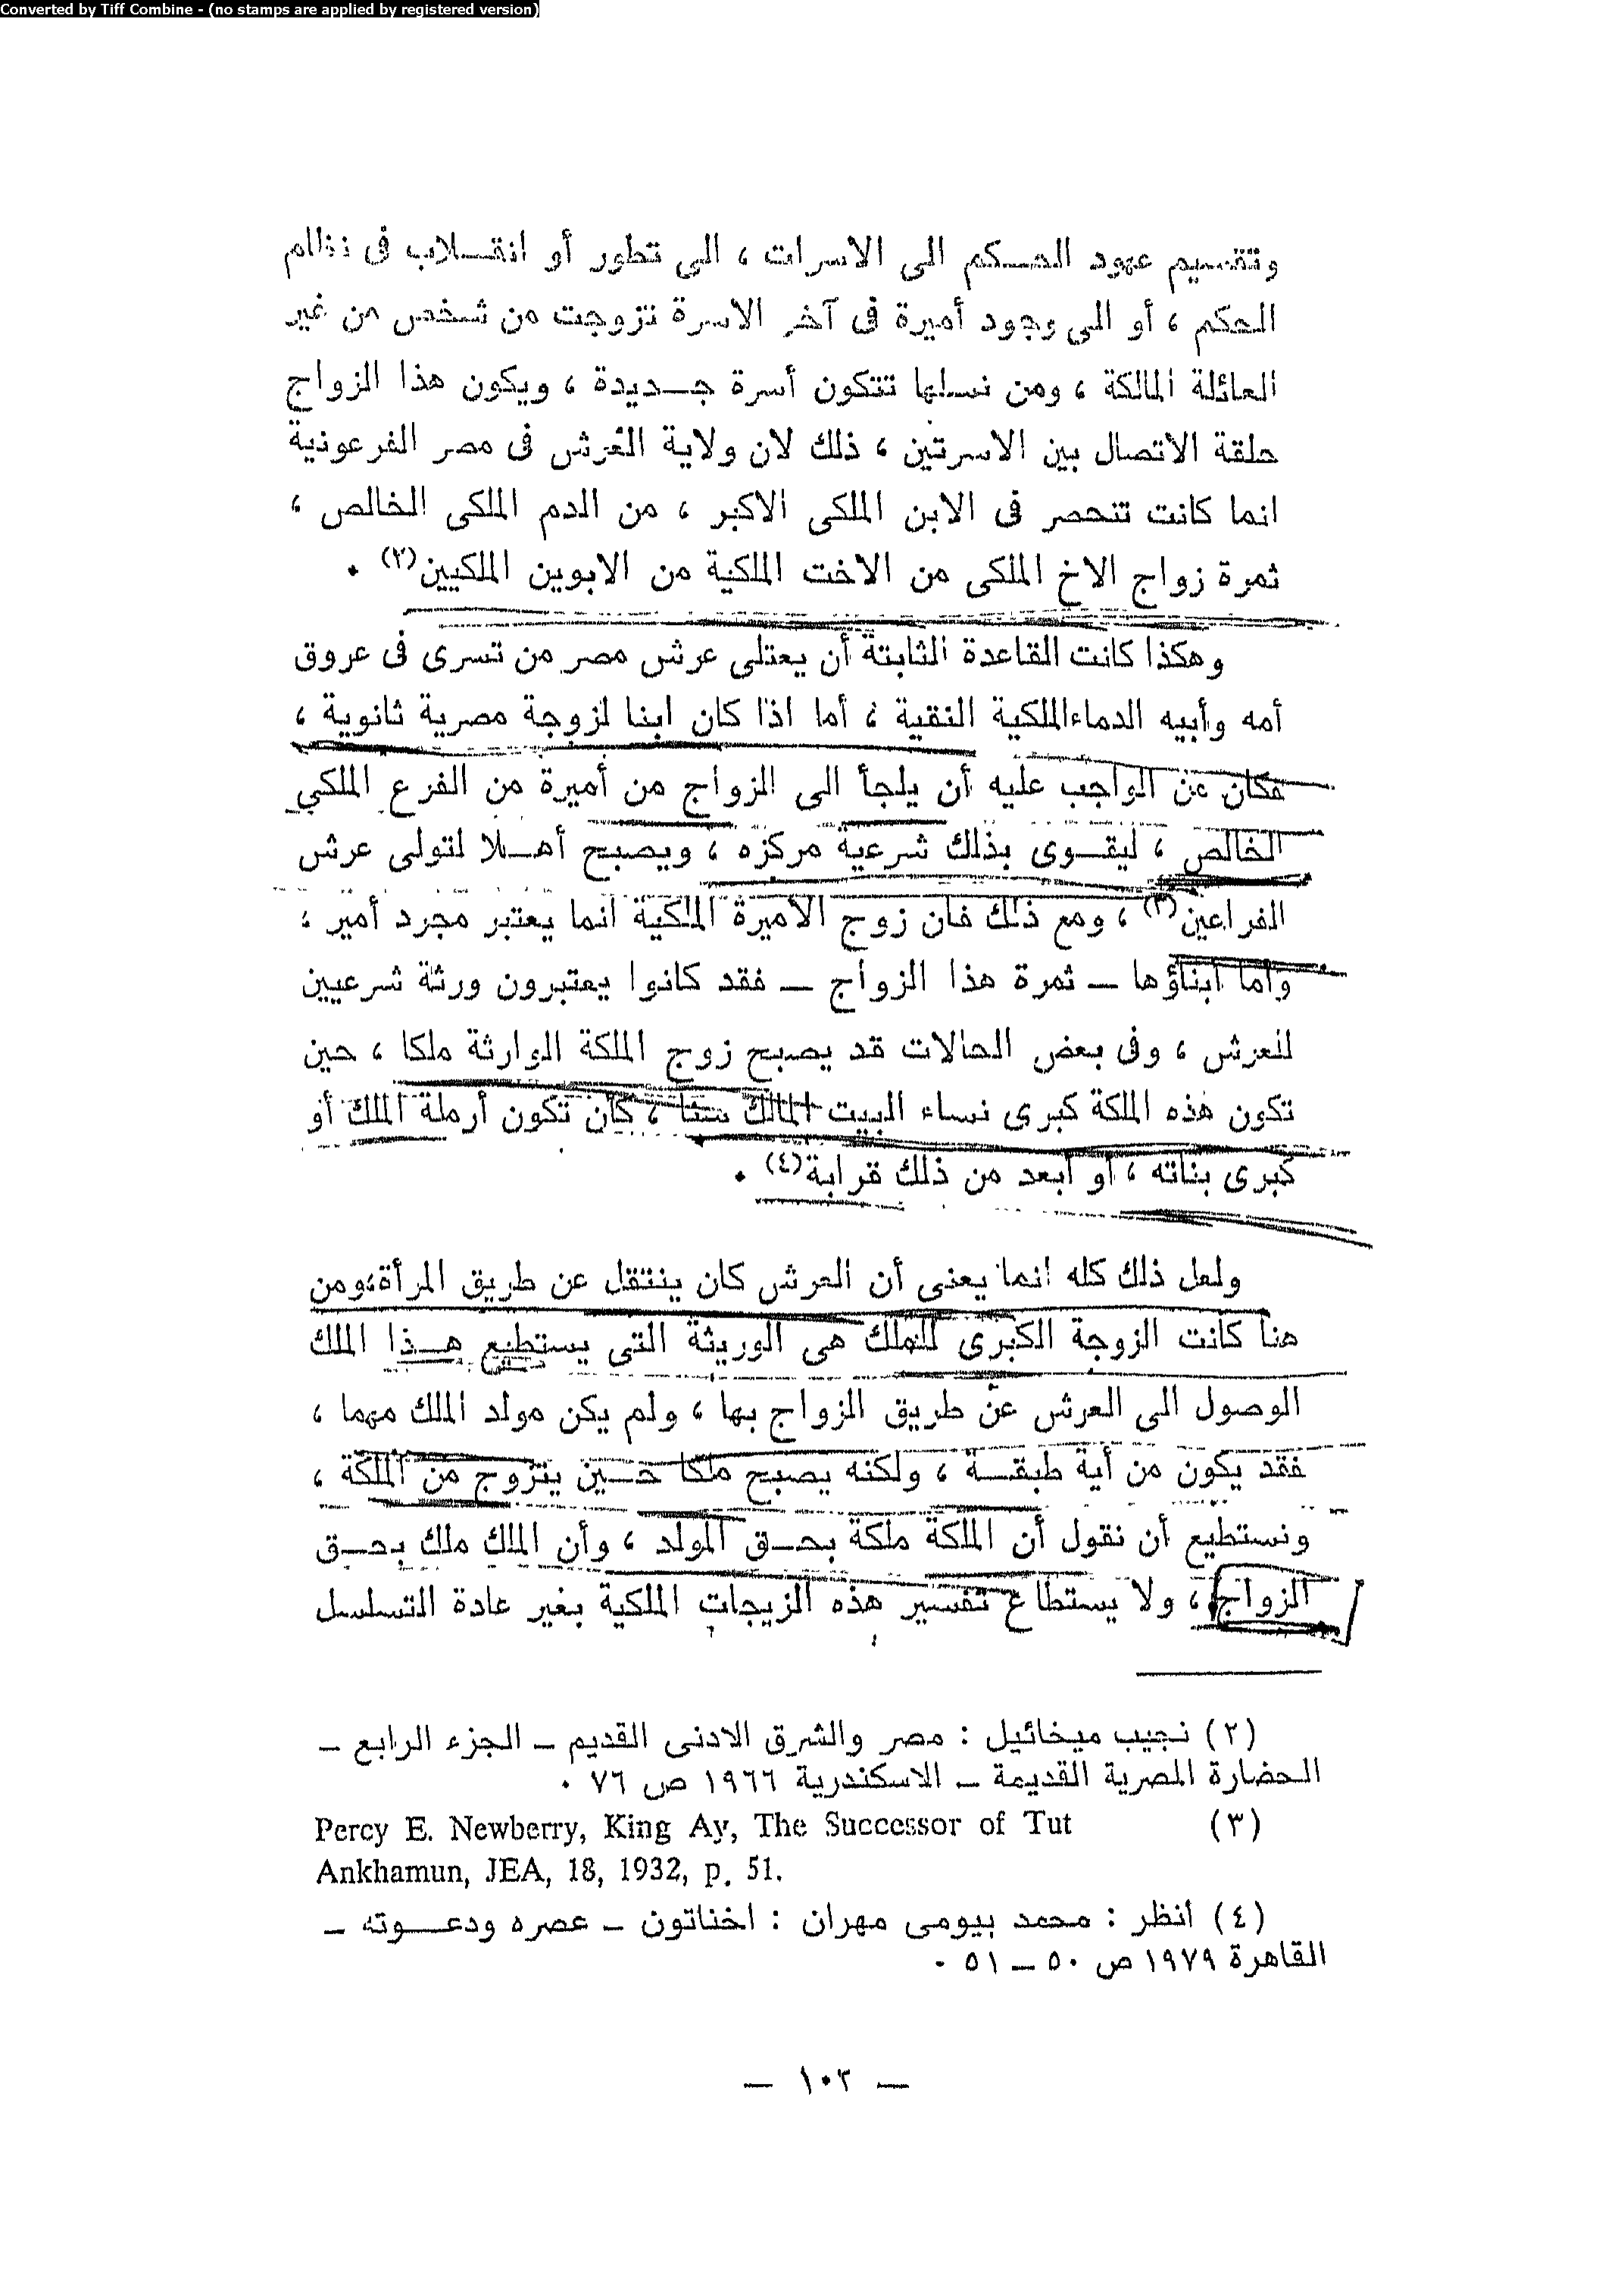 Converted by Tiff Combine - (no stamps are applied by registered version)
وتقسيم عهود الحكم الى الاسرات ، الى تطور أو انقلاب فى نظام
الحكم ، أو الى وجود أميرة فى آخر الاسرة تزوجت من شخص من غير
العائلة المالكة ، ومن نسلها تتكون أسرة جديدة ، ويكون هذا الزواج
حلقة الاتصال بين الاسرتين ، ذلك لان ولاية العرش فى مصر الفرعونية
انما كانت تنحصر فى الابن الملكى الاكبر ، من الدم الملكى الخالص ،
ثمرة زواج الاخ الملكى من الاخت الملكية من الابوين الملكيين(٢) .
وهكذا كانت القاعدة الثابتة أن يعتلى عرش مصر من تسرى فى عروق
أمه وأبيه الدماء الملكية النقية ، أما اذا كان ابنا لزوجة مصرية ثانوية ،
فكان من الواجب عليه أن يلجأ الى الزواج من أميرة من الفرع الملكي
الخالص ، ليقوى بذلك شرعية مركزه ، ويصبح أهلا لتولى عرش
الفراعين(٣) ، ومع ذلك فان زوج الاميرة الملكية انما يعتبر مجرد أمير ،
وأما أبناؤها — ثمرة هذا الزواج — فقد كانوا يعتبرون ورثة شرعيين
للعرش ، وفى بعض الحالات قد يصبح زوج الملكة الوارثة ملكا ، حين
تكون هذه الملكة كبرى نساء البيت المالك سنا ، كأن تكون أرملة الملك أو
كبرى بناته ، أو أبعد من ذلك قرابة(٤) .
ولعل ذلك كله انما يعنى أن العرش كان ينتقل عن طريق المرأة ، ومن
هنا كانت الزوجة الكبرى للملك هى الوريثة التى يستطيع هذا الملك
الوصول الى العرش عن طريق الزواج بها ، ولم يكن مولد الملك مهما ،
فقد يكون من أية طبقة ، ولكنه يصبح ملكا حين يتزوج من الملكة ،
ونستطيع أن نقول أن الملكة ملكة بحق المولد ، وأن الملك ملك بحق
الزواج ، ولا يستطاع تفسير هذه الزيجات الملكية بغير عادة التسلسل
(٢) نجيب ميخائيل : مصر والشرق الادنى القديم — الجزء الرابع —
الحضارة المصرية القديمة — الاسكندرية ١٩٦٦ ص ٧٦ .
(٣) Percy E. Newberry, King Ay, The Successor of Tut
Ankhamun, JEA, 18, 1932, p. 51.
(٤) أنظر : محمد بيومى مهران : اخناتون — عصره ودعوته —
القاهرة ١٩٧٩ ص ٥٠ — ٥١ .
— ١٠٣ —